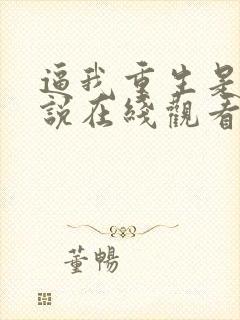 逼我重生是
說在綫觀看
董暢